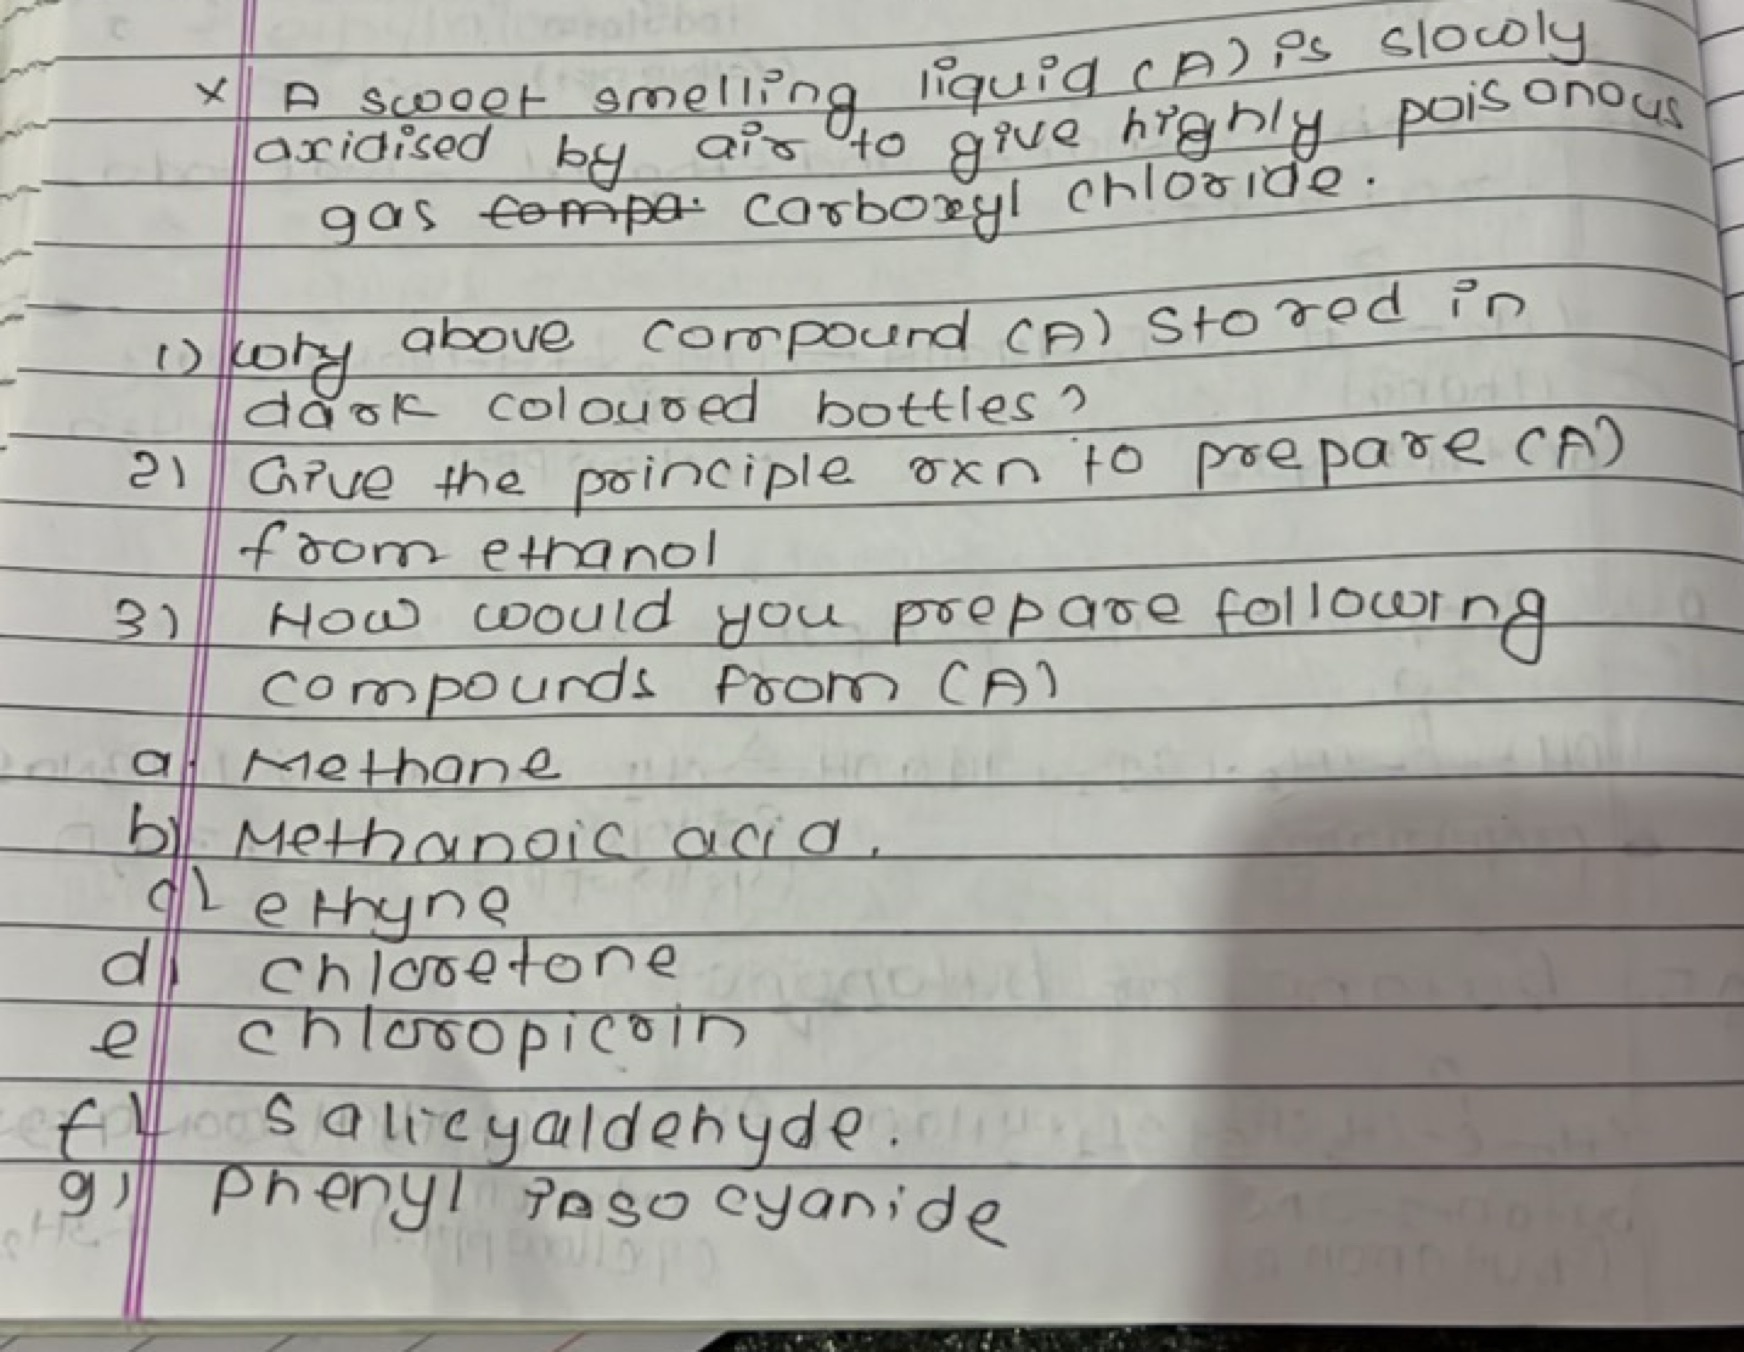 x A sweet smelling liquid (A) is slowly
oxidised by air to give highly poisonous
gas compa. carboxyl chloride.
1) why above compound (A) stored in
dark coloured bottles?
2) Give the principle rxn to prepare (A)
from ethanol
3) How would you prepare following
compounds from (A)
a. Methane
b) Methanoic acid.
c) ethyne
d) chloretone
e chloropicrin
f) salicyaldehyde.
g) phenyl isocyanide